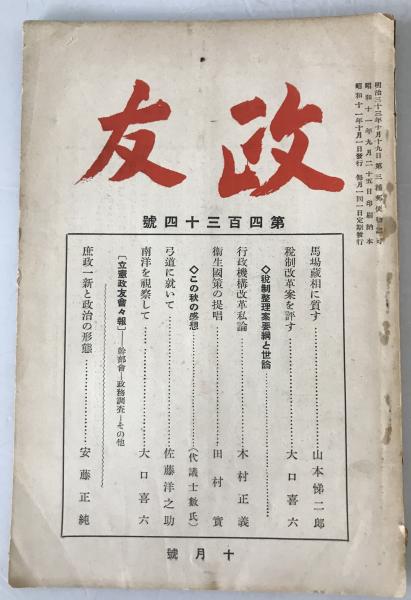 明治三十三年十月十九日第三種郵便物認可
昭和十一年九月二十五日印刷納本
昭和十一年十月一日發行 每月一回一日定期發行
政友
第四百三十四號
馬場藏相に質す……………山本悌二郎
稅制改革案を評す……………大口喜六
◇稅制整理案要綱と世論……………
行政機構改革私論……………木村正義
衞生國策の提唱……………田村實
◇この秋の感想……………(代議士數氏)
弓道に就いて……………佐藤洋之助
南洋を視察して……………大口喜六
〔立憲政友會々報〕——幹部會—政務調査—その他
庶政一新と政治の形態……………安藤正純
十月號